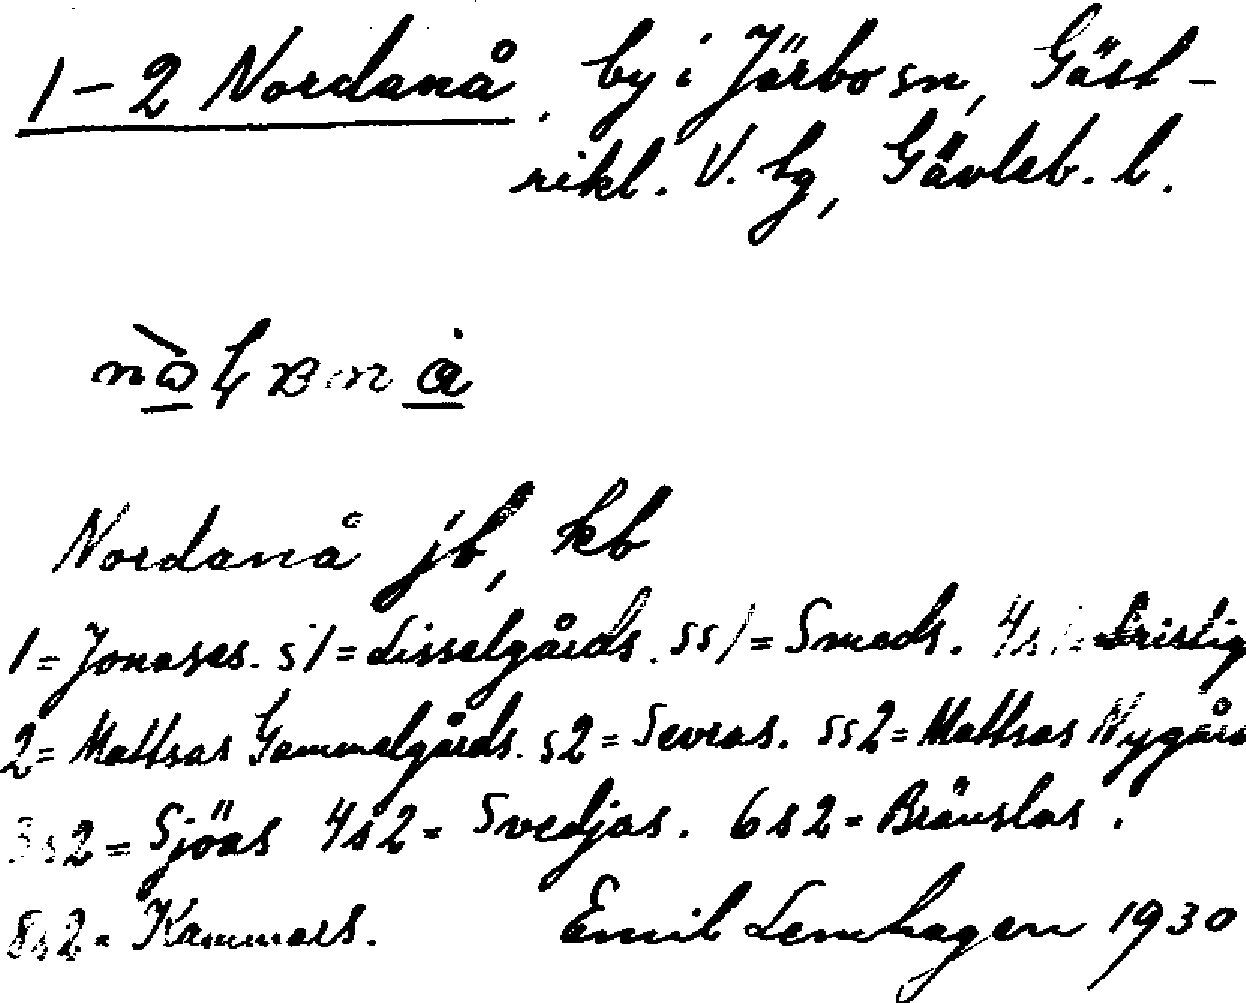 1-2 Nordanå, by i Järbo sn, Gäst-
rikl. V. hg, Gävleb. l.
Nordanå jb, kb
1= Jonases. s1= Lisselgårds. ss1= Smeds. 4s1=
2= Mattsas Gammelgårds. s2= Sevras. ss2= Mattsas Nygård
3s2= Sjöas 4s2= Svedjas. 6s2= Bränslas.
8s2= Kammars. Emil Lenhagen 1930